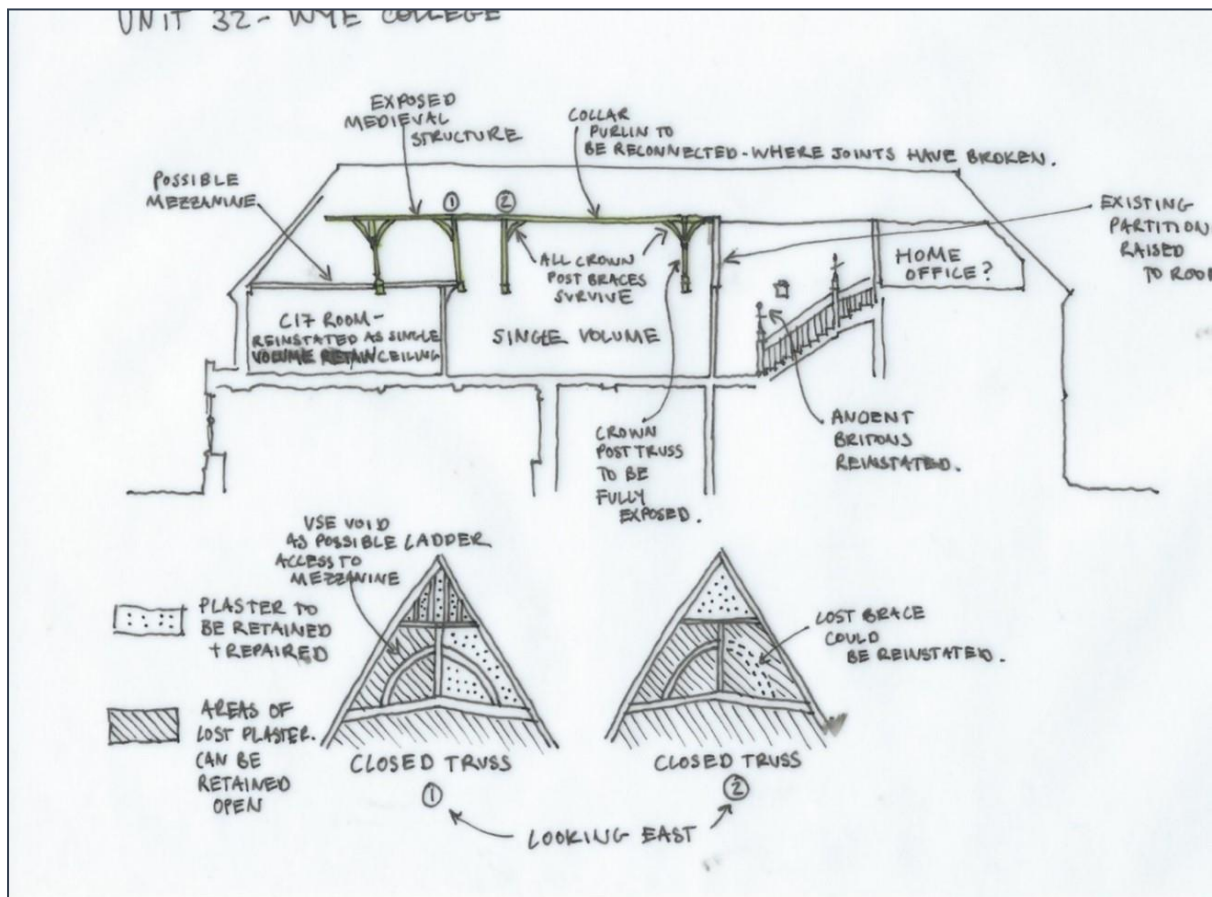 UNIT 32 - WYE COLLEGE
EXPOSED
MEDIEVAL
STRUCTURE
COLLAR
PURLIN TO
BE RECONNECTED - WHERE JOINTS HAVE BROKEN.
POSSIBLE
MEZZANINE
①
②
EXISTING
PARTITION
RAISED
TO ROOF
ALL CROWN
POST BRACES
SURVIVE
HOME
OFFICE?
C17 ROOM -
REINSTATED AS SINGLE
VOLUME RETAIN CEILING
SINGLE VOLUME
CROWN
POST TRUSS
TO BE
FULLY
EXPOSED.
ANCIENT
BRITONS
REINSTATED.
USE VOID
AS POSSIBLE LADDER
ACCESS TO
MEZZANINE
PLASTER TO
BE RETAINED
+ REPAIRED
AREAS OF
LOST PLASTER.
CAN BE
RETAINED
OPEN
LOST BRACE
COULD
BE REINSTATED.
CLOSED TRUSS
①
CLOSED TRUSS
②
LOOKING EAST